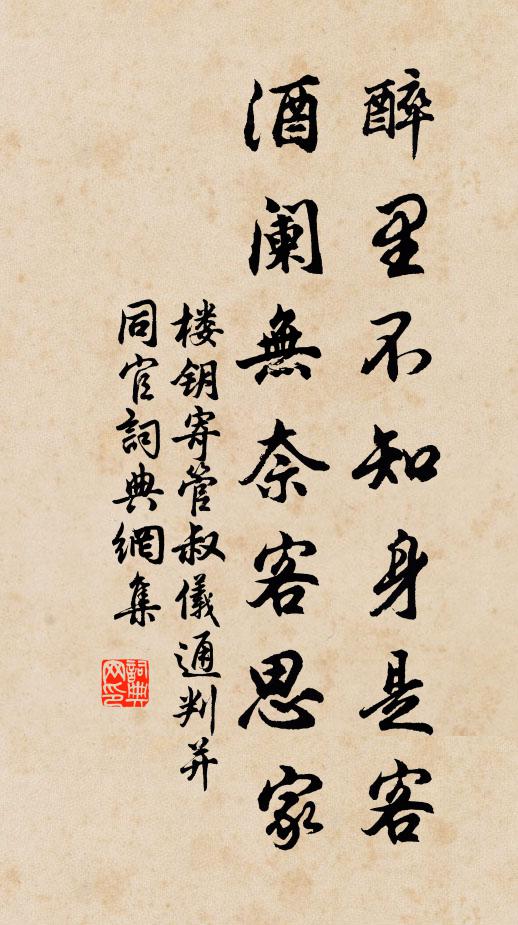 醉里不知身是客
酒阑無奈客思家
楼钥寄管叔儀通判并
同官詞典網集
詞典
网印